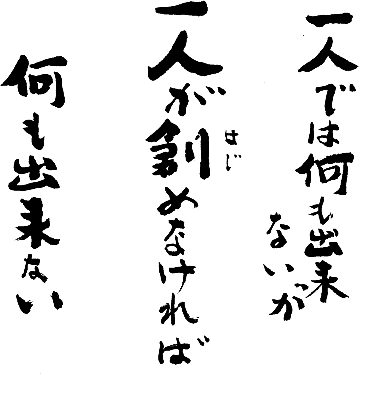 一人では何も出来
ないが
はじ
一人が創めなければ
何も出来ない